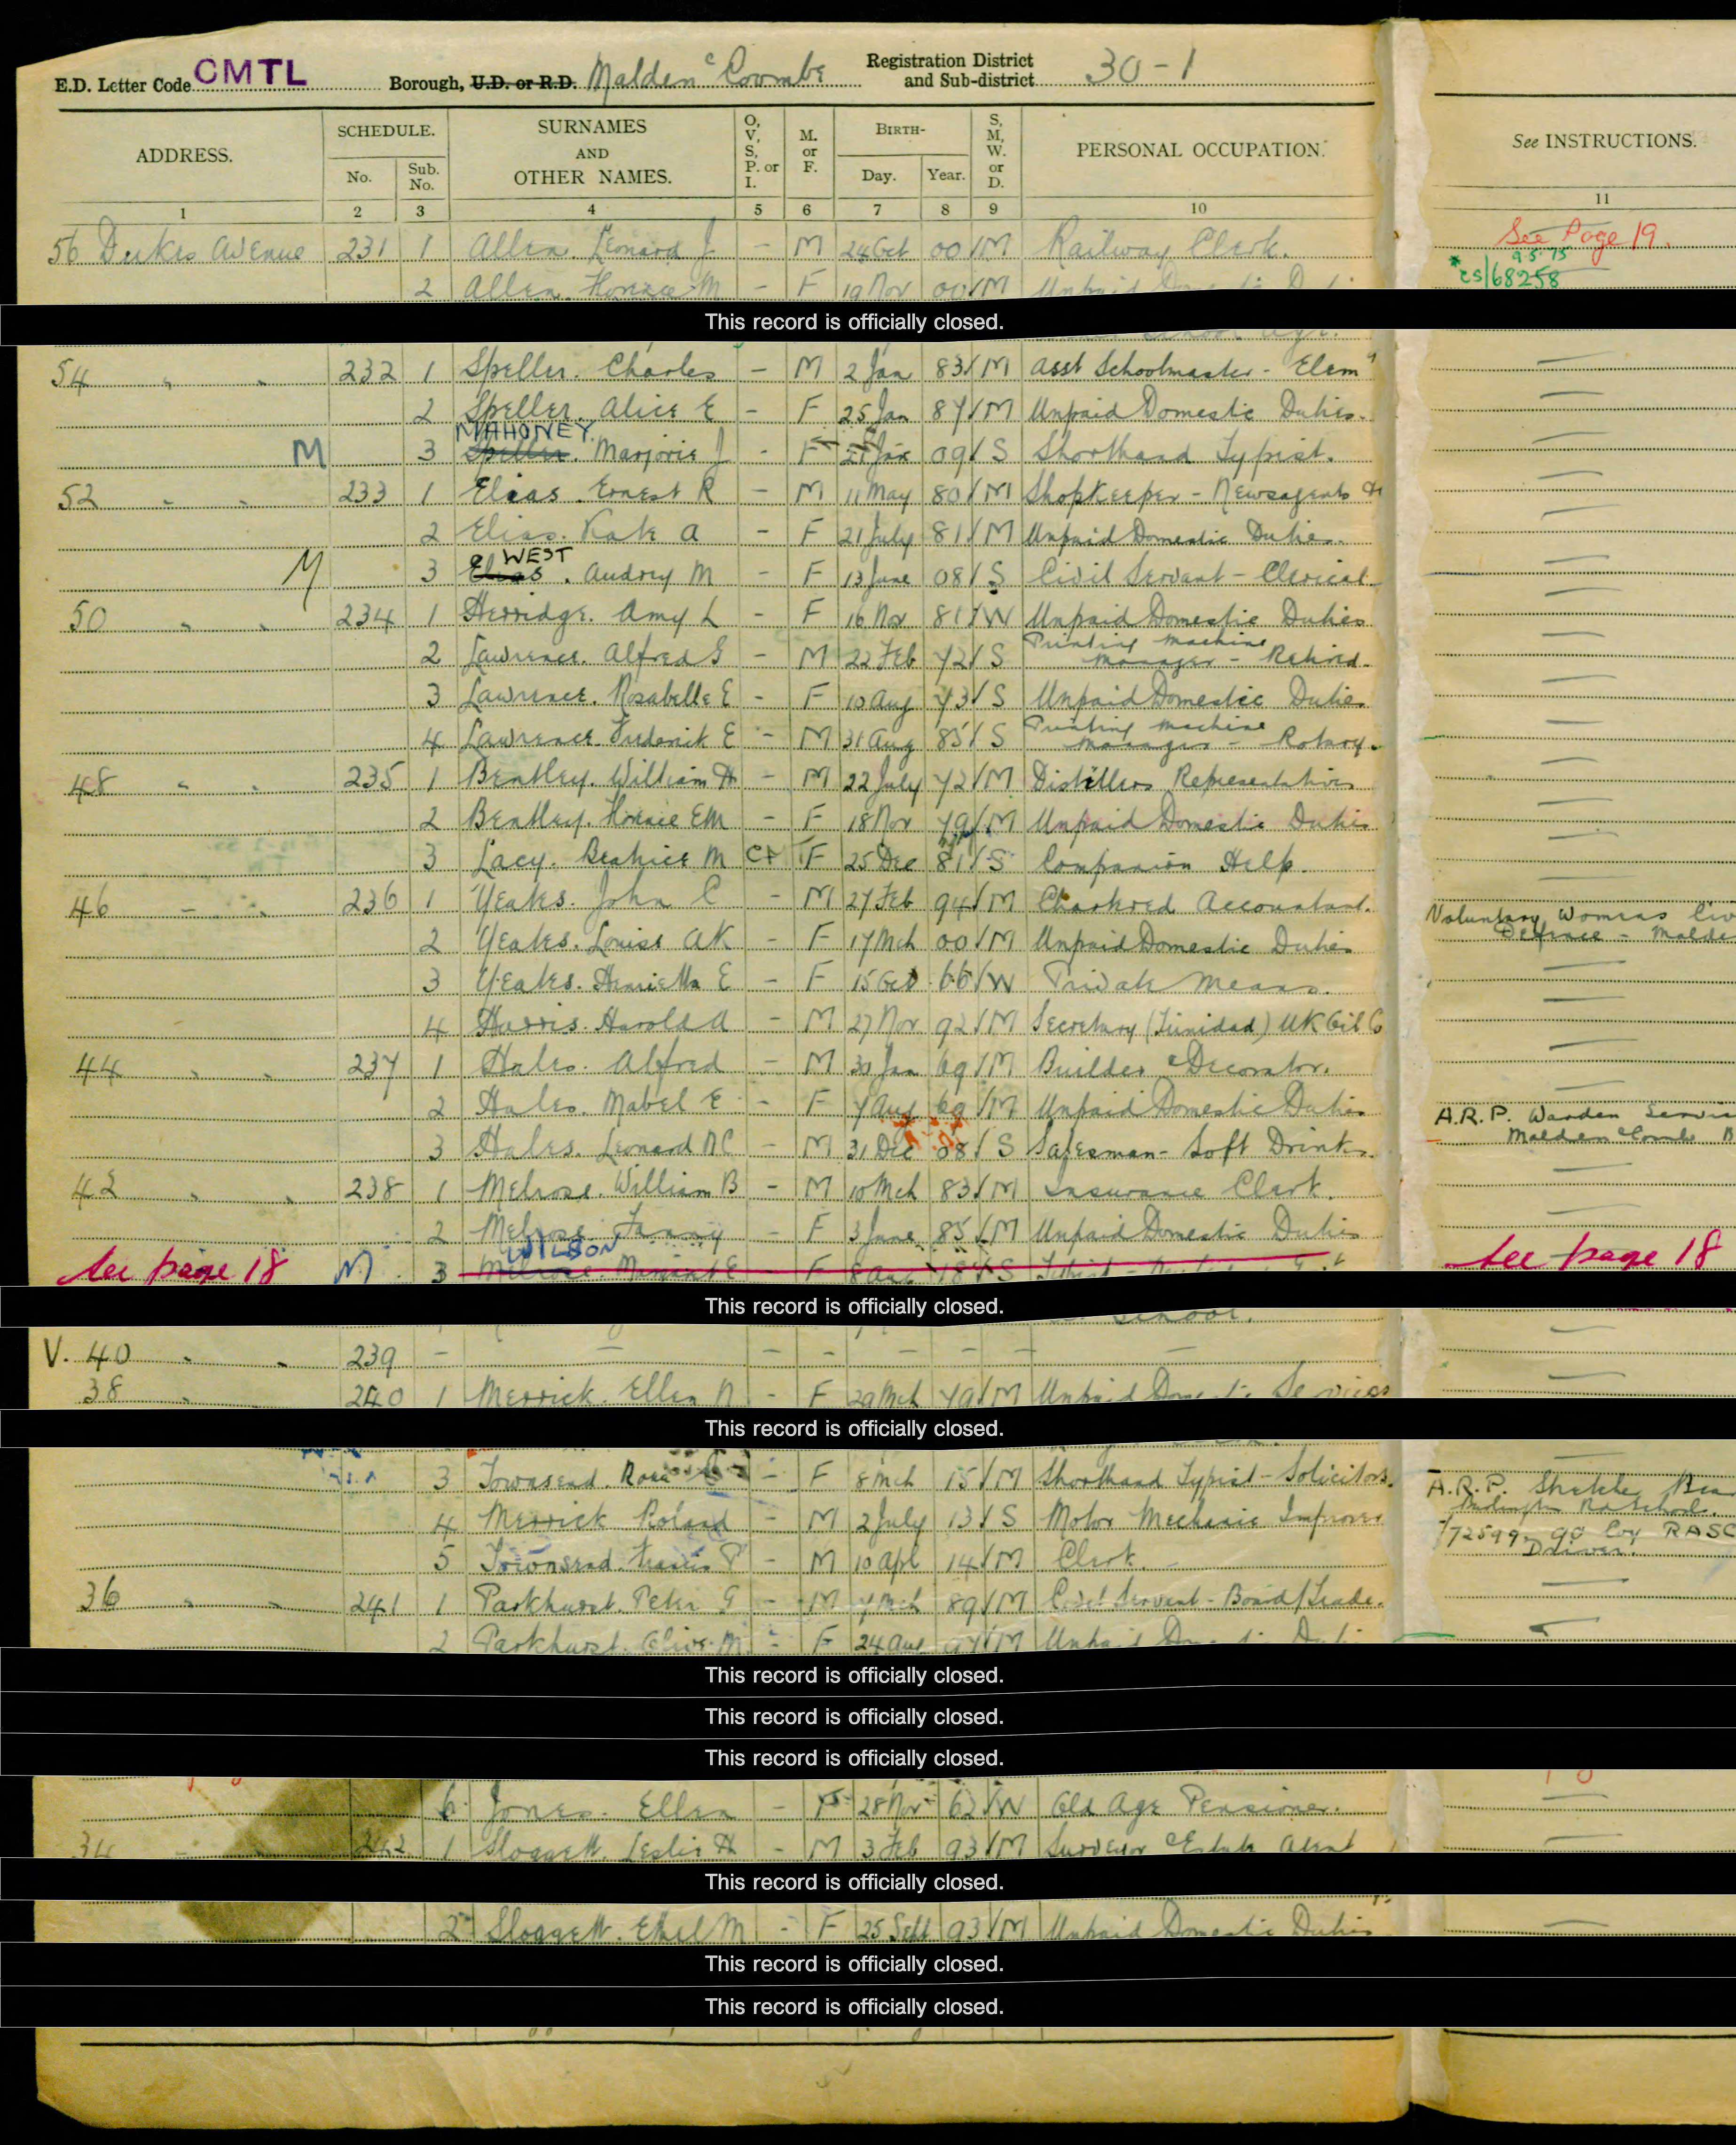 E.D. Letter Code CMTL Borough, U.D. or R.D. Malden & Coombe Registration District and Sub-district 30-1
ADDRESS. SCHEDULE. No. Sub. No. SURNAMES AND OTHER NAMES. O, V, S, P. or I. M. or F. BIRTH- Day. Year. S, M, W. or D. PERSONAL OCCUPATION. See INSTRUCTIONS.
1 2 3 4 5 6 7 8 9 10 11
56 Dukes Avenue 231 1 Allen. Leonard J - M 24 Oct 00 M Railway Clerk. See Page 19.
2 Allen. Florence M - F 19 Nov 00 M Unpaid Domestic 9.5.75 * CS/68258
This record is officially closed.
54 " " 232 1 Speller. Charles - M 2 Jan 83 M Asst Schoolmaster - Elem
2 Speller. Alice E - F 25 Jan 87 M Unpaid Domestic Duties.
MAHONEY.
M 3 Speller. Marjorie J - F 21 Jan 09 S Shorthand Typist.
52 " " 233 1 Elias. Ernest R - M 11 May 80 M Shopkeeper - Newsagents
2 Elias. Kate A - F 21 July 81 M Unpaid Domestic Duties.
WEST
M 3 Elias. Audrey M - F 13 June 08 S Civil Servant - Clerical
50 " " 234 1 Herridge. Amy L - F 16 Nov 81 W Unpaid Domestic Duties
2 Lawrence. Alfred G - M 22 Feb 72 S Printing Machine Manager - Retired.
3 Lawrence. Rosabelle E - F 10 Aug 73 S Unpaid Domestic Duties
4 Lawrence. Frederick E - M 31 Aug 85 S Printing Machine Manager - Rotary.
48 " " 235 1 Bentley. William H - M 22 July 72 M Distillers Representative
2 Bentley. Florence EM - F 18 Nov 79 M Unpaid Domestic Duties
3 Lacy. Beatrice M F 25 Dec 81 S Companion Help.
46 - " 236 1 Yeates. John C - M 27 Feb 94 M Chartered Accountant.
2 Yeates. Louise AK - F 17 Mch 00 M Unpaid Domestic Duties Voluntary Womens Civ Defence - Malde
3 Yeates. Henrietta E - F 15 Oct 66 W Private Means.
4 Harris. Harold A - M 27 Nov 92 M Secretary (Trinidad) UK Oil Co
44 " " 237 1 Hales. Alfred - M 31 Jan 69 M Builder & Decorator.
2 Hales. Mabel E - F 7 Aug 69 M Unpaid Domestic Duties
3 Hales. Leonard - M 31 Dec 08 S Salesman - Soft Drinks. A.R.P. Warden Servic Malden Coombe B
42 " " 238 1 Melrose. William B - M 10 Mch 83 M Insurance Clerk.
2 Melrose. Fanny - F 3 June 85 M Unpaid Domestic Duties
WILSON
See page 18 M 3 Melrose. E - F 8 Aug S See page 18
This record is officially closed.
School.
V. 40 " " 239 - - - - - - - -
38 " 240 1 Merrick. Ellen - F 29 Mch 79 M Unpaid
This record is officially closed.
3 Townsend. Rose - F 8 Mch 15 M Shorthand Typist - Solicitors.
4 Merrick Roland - M 2 July 13 S Motor Mechanic Improver A.R.P. Stretcher Bea
5 Townsend. Francis P - M 10 Apl 14 M Clerk. 90 Coy RASC Driver.
36 " " 241 1 Parkhurst. Peter G - M 7 Mch 89 M Civil Servant - Board/Trade.
2 Parkhurst. Olive M - F 24 Aug M
This record is officially closed.
This record is officially closed.
This record is officially closed.
6 Jones. Ellen - F 28 Nov 62 W Old Age Pensioner.
34 - " 242 1 Sloggett. Leslie H - M 3 Feb 93 M Surveyor & Estate Agent
This record is officially closed.
2 Sloggett. Ethel M - F 25 Sept 93 M Unpaid Domestic Duties
This record is officially closed.
This record is officially closed.